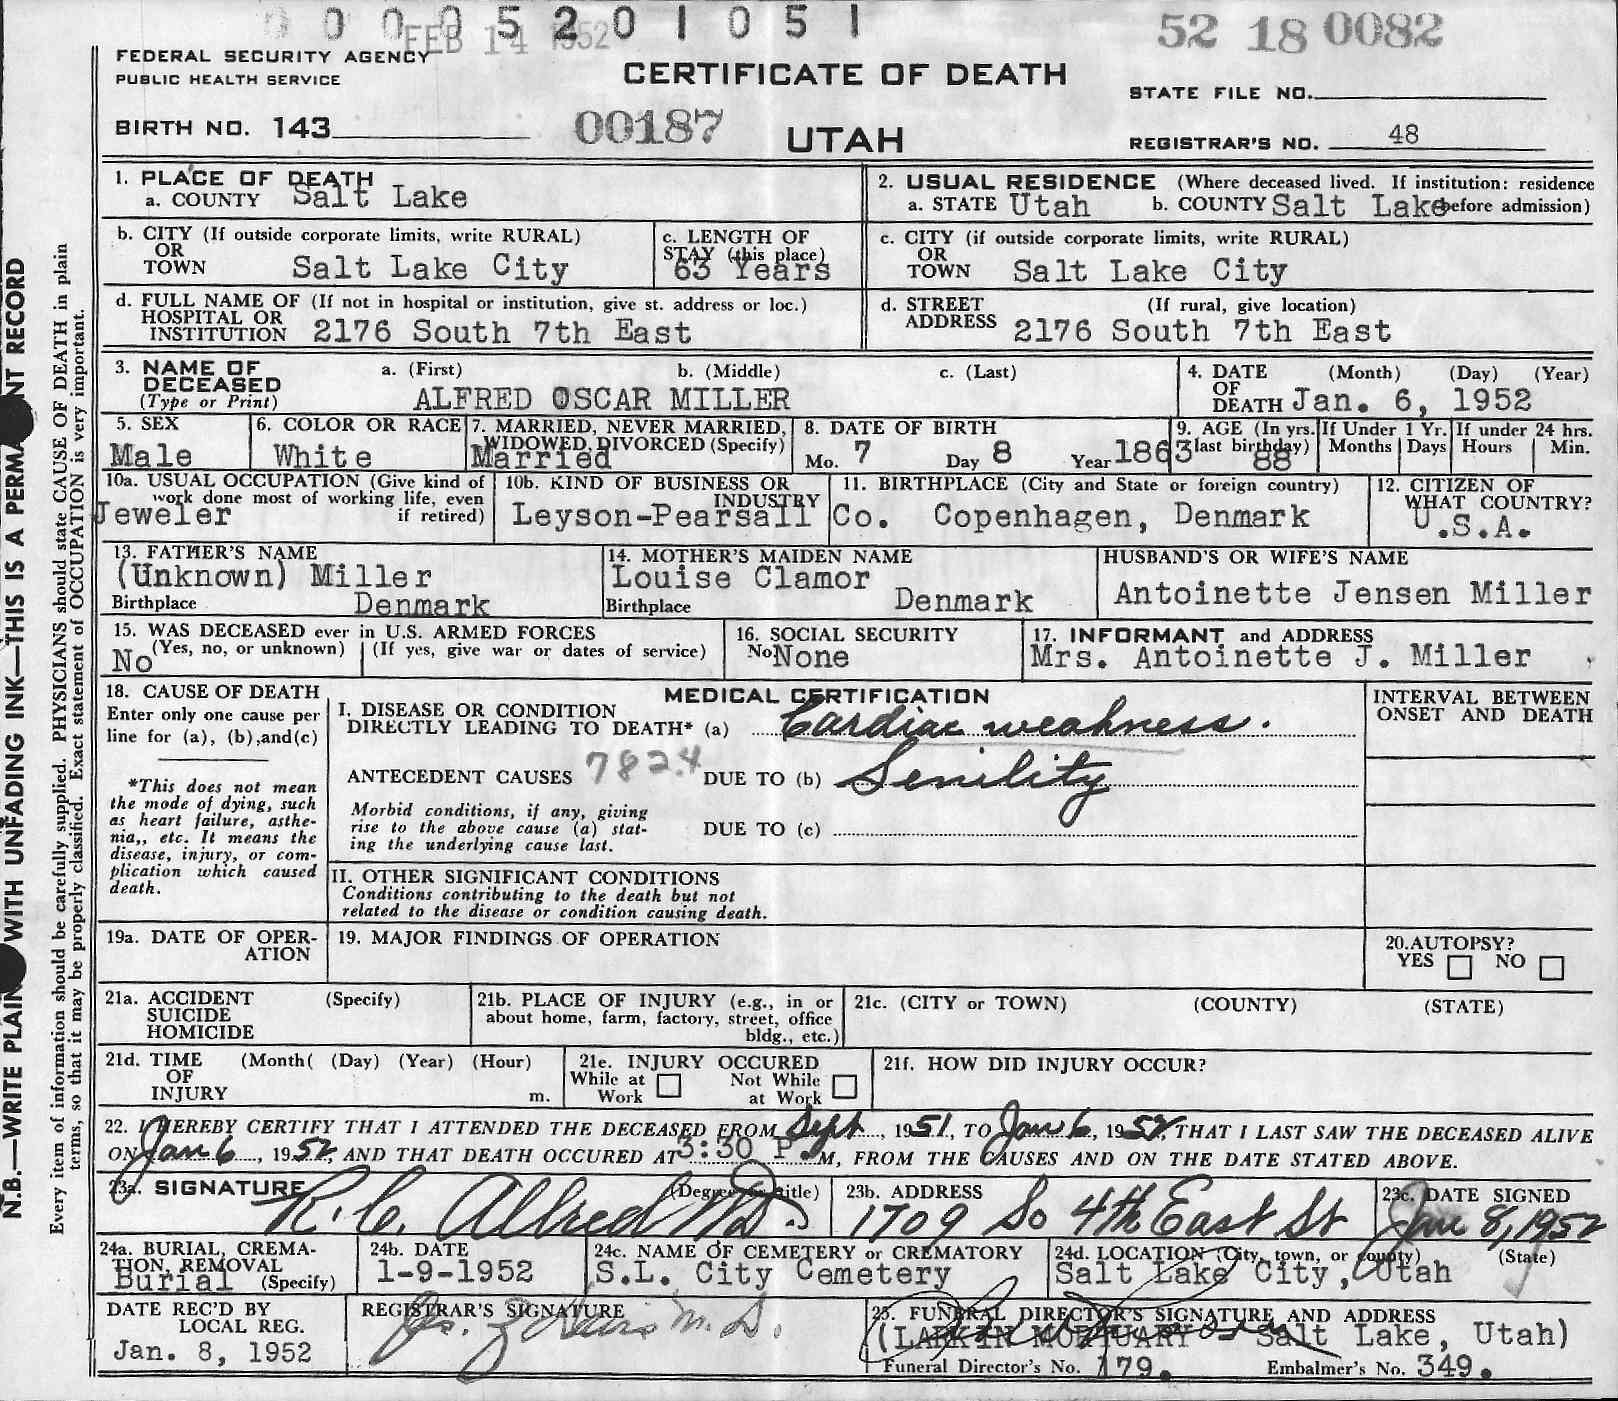 0 0 0 0 5 2 0 1 0 5 1
FEB 14 1952
52 18 0082
FEDERAL SECURITY AGENCY
PUBLIC HEALTH SERVICE
CERTIFICATE OF DEATH
STATE FILE NO.
BIRTH NO. 143
00187
UTAH
REGISTRAR'S NO. 48
1. PLACE OF DEATH
a. COUNTY Salt Lake
2. USUAL RESIDENCE (Where deceased lived. If institution: residence
a. STATE Utah b. COUNTY Salt Lake before admission)
b. CITY (If outside corporate limits, write RURAL)
OR
TOWN Salt Lake City
c. LENGTH OF
STAY (this place)
63 Years
c. CITY (if outside corporate limits, write RURAL)
OR
TOWN Salt Lake City
d. FULL NAME OF (If not in hospital or institution, give st. address or loc.)
HOSPITAL OR
INSTITUTION 2176 South 7th East
d. STREET (If rural, give location)
ADDRESS 2176 South 7th East
3. NAME OF a. (First) b. (Middle) c. (Last)
DECEASED
(Type or Print) ALFRED OSCAR MILLER
4. DATE (Month) (Day) (Year)
OF
DEATH Jan. 6, 1952
5. SEX
Male
6. COLOR OR RACE
White
7. MARRIED, NEVER MARRIED,
WIDOWED, DIVORCED (Specify)
Married
8. DATE OF BIRTH
Mo. 7 Day 8 Year 1863
9. AGE (In yrs.
last birthday)
88
If Under 1 Yr.
Months Days
If under 24 hrs.
Hours Min.
10a. USUAL OCCUPATION (Give kind of
work done most of working life, even
if retired)
Jeweler
10b. KIND OF BUSINESS OR
INDUSTRY
Leyson-Pearsall Co.
11. BIRTHPLACE (City and State or foreign country)
Copenhagen, Denmark
12. CITIZEN OF
WHAT COUNTRY?
U.S.A.
13. FATHER'S NAME
(Unknown) Miller
Birthplace Denmark
14. MOTHER'S MAIDEN NAME
Louise Clamor
Birthplace Denmark
HUSBAND'S OR WIFE'S NAME
Antoinette Jensen Miller
15. WAS DECEASED ever in U.S. ARMED FORCES
(Yes, no, or unknown) (If yes, give war or dates of service)
No
16. SOCIAL SECURITY
No None
17. INFORMANT and ADDRESS
Mrs. Antoinette J. Miller
18. CAUSE OF DEATH
Enter only one cause per
line for (a), (b), and (c)
*This does not mean
the mode of dying, such
as heart failure, asthe-
nia,, etc. It means the
disease, injury, or com-
plication which caused
death.
MEDICAL CERTIFICATION
I. DISEASE OR CONDITION
DIRECTLY LEADING TO DEATH* (a) Cardiac weakness.
ANTECEDENT CAUSES 782.4 DUE TO (b) Senility
Morbid conditions, if any, giving
rise to the above cause (a) stat-
ing the underlying cause last.
DUE TO (c)
INTERVAL BETWEEN
ONSET AND DEATH
II. OTHER SIGNIFICANT CONDITIONS
Conditions contributing to the death but not
related to the disease or condition causing death.
19a. DATE OF OPER-
ATION
19. MAJOR FINDINGS OF OPERATION
20. AUTOPSY?
YES NO
21a. ACCIDENT (Specify)
SUICIDE
HOMICIDE
21b. PLACE OF INJURY (e.g., in or
about home, farm, factory, street, office
bldg., etc.)
21c. (CITY or TOWN) (COUNTY) (STATE)
21d. TIME (Month( (Day) (Year) (Hour)
OF
INJURY m.
21e. INJURY OCCURED
While at Not While
Work at Work
21f. HOW DID INJURY OCCUR?
22. I HEREBY CERTIFY THAT I ATTENDED THE DECEASED FROM Sept, 1951, TO Jan 6, 1952, THAT I LAST SAW THE DECEASED ALIVE
ON Jan 6, 1952, AND THAT DEATH OCCURED AT 3:30 P.M, FROM THE CAUSES AND ON THE DATE STATED ABOVE.
23a. SIGNATURE (Degree or title)
R. C. Alfred M D.
23b. ADDRESS
1709 So 4th East St
23c. DATE SIGNED
Jan 8, 1952
24a. BURIAL, CREMA-
TION, REMOVAL
Burial (Specify)
24b. DATE
1-9-1952
24c. NAME OF CEMETERY or CREMATORY
S.L. City Cemetery
24d. LOCATION (City, town, or county) (State)
Salt Lake City, Utah
DATE REC'D BY
LOCAL REG.
Jan. 8, 1952
REGISTRAR'S SIGNATURE
M. D.
25. FUNERAL DIRECTOR'S SIGNATURE AND ADDRESS
(LARKIN MORTUARY Salt Lake, Utah)
Funeral Director's No. 179. Embalmer's No. 349.
N.B.—WRITE PLAINLY WITH UNFADING INK—THIS IS A PERMANENT RECORD
Every item of information should be carefully supplied. PHYSICIANS should state CAUSE OF DEATH in plain
terms, so that it may be properly classified. Exact statement of OCCUPATION is very important.